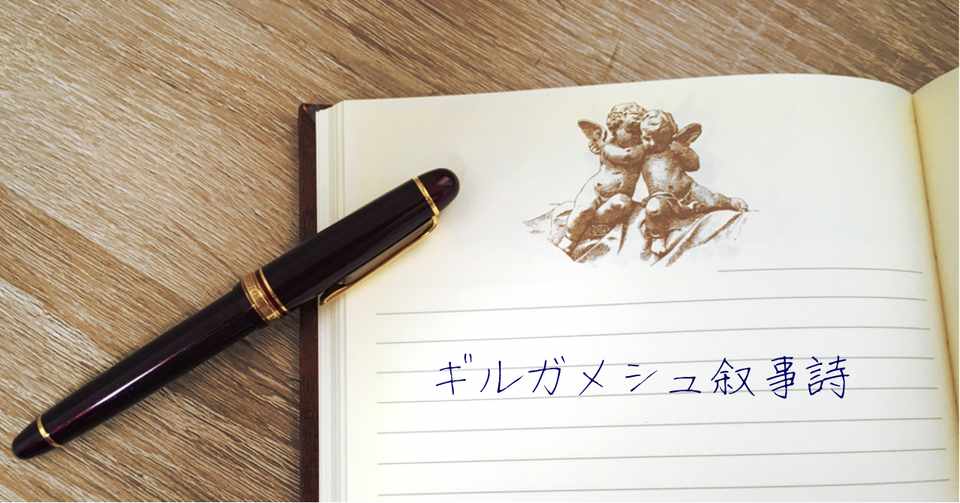 ギルガメシュ叙事詩